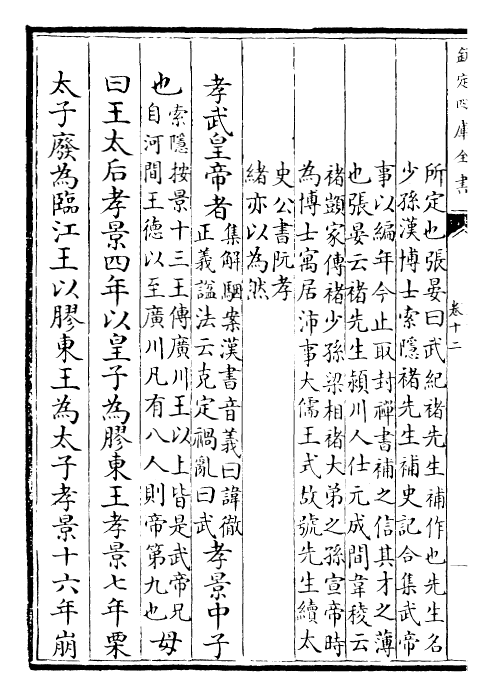 欽定四庫全書
卷十二
所定也張晏曰武紀褚先生補作也先生名
少孫漢博士索隱褚先生補史記合集武帝
事以編年今止取封禪書補之信其才之薄
也張晏云褚先生潁川人仕元成間韋稜云
褚顗家傳褚少孫梁相褚大弟之孫宣帝時
為博士寓居沛事大儒王式故號先生續太
史公書阮孝
緒亦以為然
孝武皇帝者集解駰案漢書音義曰諱徹正義諡法云克定禍亂曰武孝景中子
也索隱按景十三王傳廣川王以上皆是武帝兄自河間王德以至廣川凡有八人則帝第九也母
曰王太后孝景四年以皇子為膠東王孝景七年栗
太子廢為臨江王以膠東王為太子孝景十六年崩